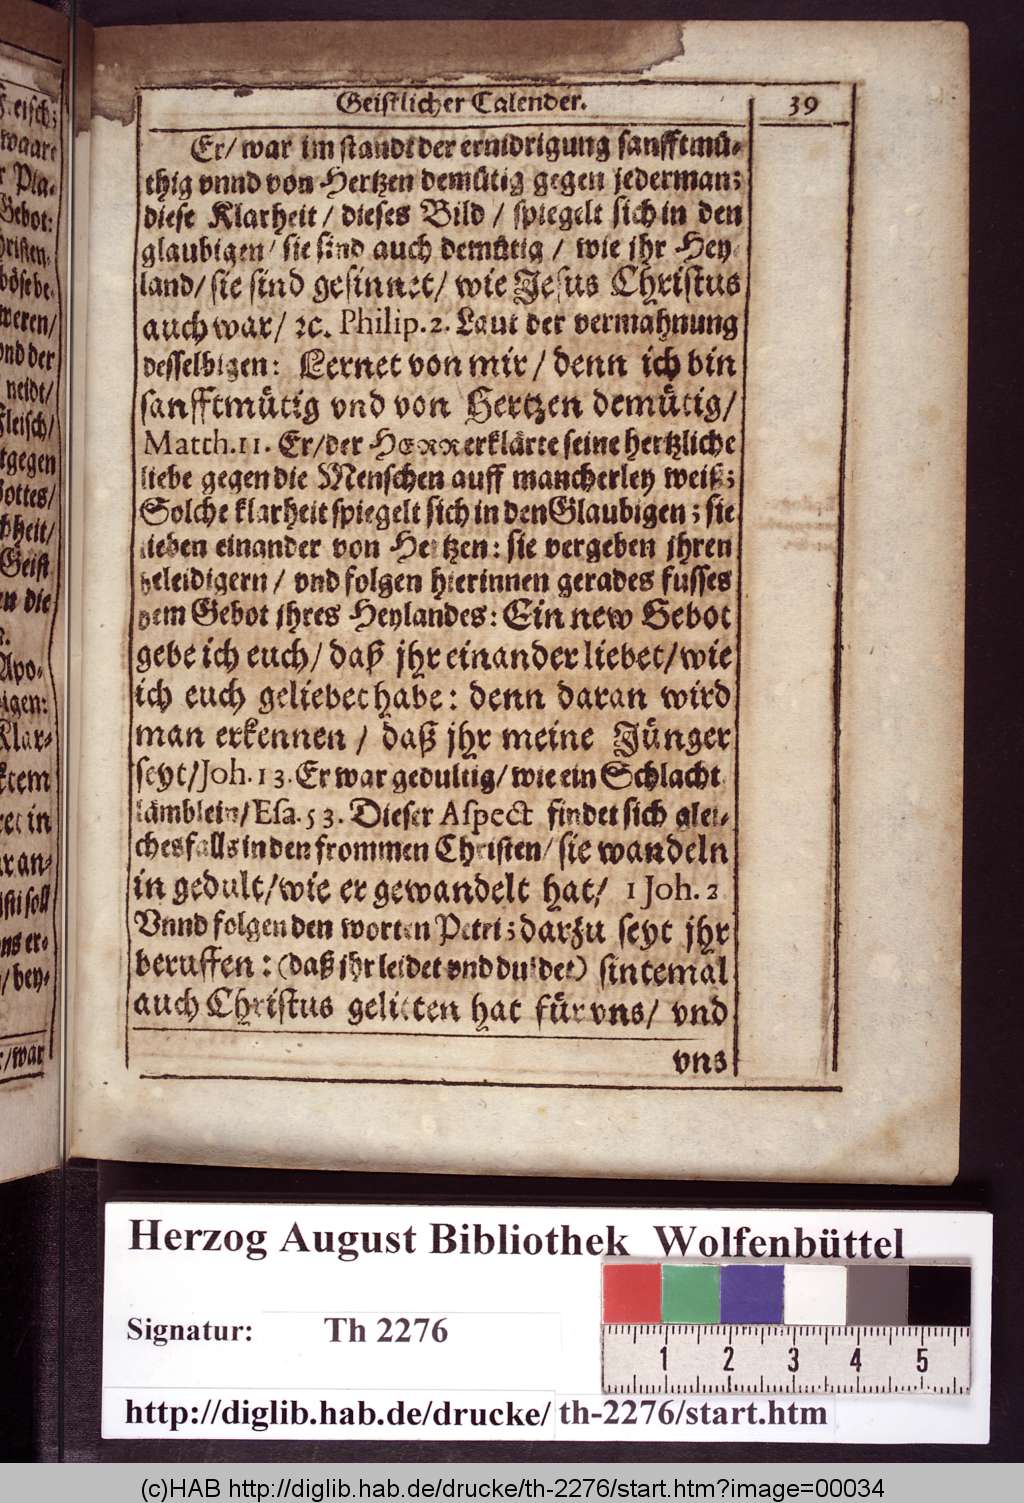 Fleisch;
waare
r Pla-
Gebot:
hristen-
böse be-
weren/
vnd der
neidt/
Fleisch/
tgegen
Gottes/
heit/
Geist
en die
Apo-
igen:
Klar-
ktem
ret in
ar an-
isti soll
ns er-
/ bey-
r/war
Geistlicher Calender. 39
Er/ war im standt der ernidrigung sanfftmü-
thig vnnd von Hertzen demütig gegen jederman;
diese Klarheit / dieses Bild / spiegelt sich in den
glaubigen/ sie sind auch demütig / wie jhr Hey-
land/ sie sind gesinnet/ wie Jesus Christus
auch war/ ꝛc. Philip. 2. Laut der vermahnung
desselbigen: Lernet von mir / denn ich bin
sanfftmütig vnd von Hertzen demütig/
Matth. 11. Er/ der HERR erklärte seine hertzliche
liebe gegen die Menschen auff mancherley weiß;
Solche klarheit spiegelt sich in den Glaubigen; sie
lieben einander von Hertzen: sie vergeben jhren
beleidigern / vnd folgen hierinnen gerades fusses
dem Gebot jhres Heylandes: Ein new Gebot
gebe ich euch/ daß jhr einander liebet/ wie
ich euch geliebet habe: denn daran wird
man erkennen / daß jhr meine Jünger
seyt/ Joh. 13. Er war gedultig/ wie ein Schlacht
lämblein/ Esa. 53. Dieser Aspect findet sich glei-
ches falls in den frommen Christen/ sie wandeln
in gedult/ wie er gewandelt hat/ 1 Joh. 2
Vnnd folgen den worten Petri; darzu seyt jhr
beruffen: (daß jhr leidet vnd duldet) sintemal
auch Christus gelitten hat für vns/ vnd
vns
Herzog August Bibliothek Wolfenbüttel
Signatur: Th 2276
1 2 3 4 5
http://diglib.hab.de/drucke/ th-2276/start.htm
(c)HAB http://diglib.hab.de/drucke/th-2276/start.htm?image=00034